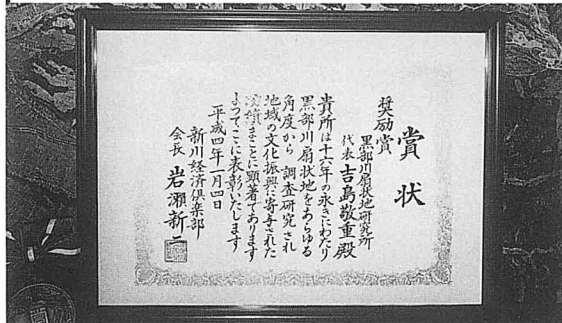 賞状
奨励賞
黒部川扇状地研究所
代表 吉島敬重殿
貴所は十六年の永きにわたり
黒部川扇状地をあらゆる
角度から 調査研究され
地域の文化振興に寄与された
功績まことに顕著であります
よってここに表彰いたします
平成四年一月四日
新川経済倶楽部
会長 岩瀬新二